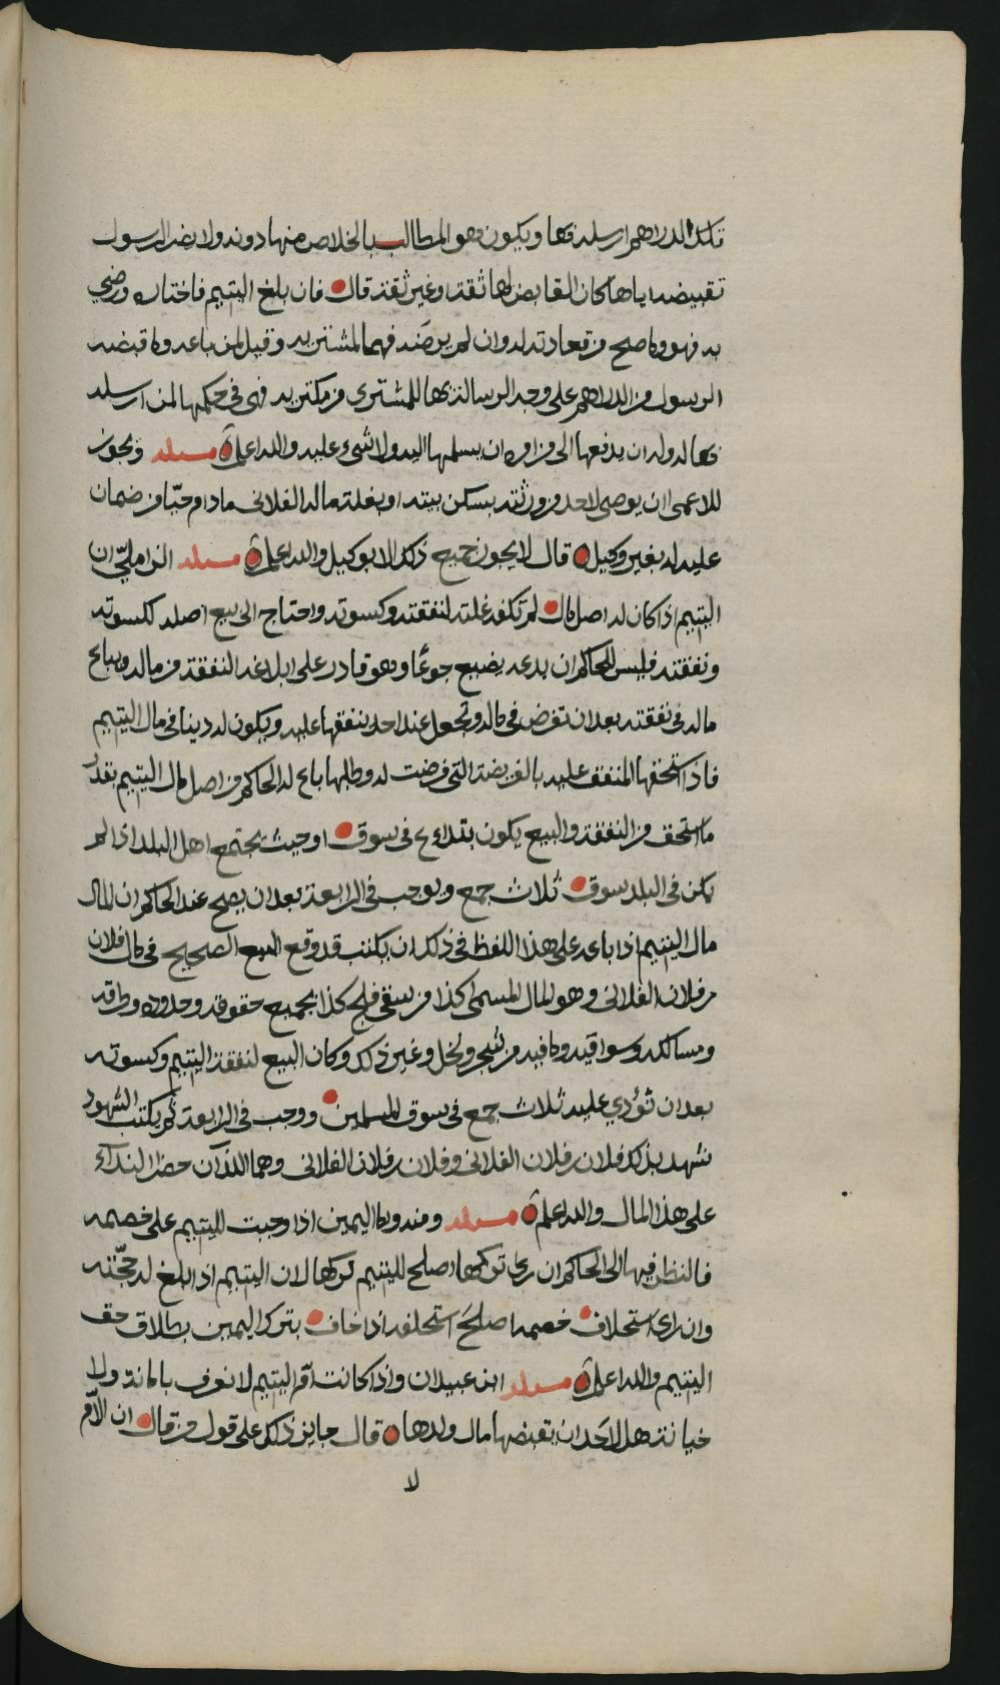 تلك الدراهم ارسله بها ويكون هو المطالب بالخلاص منها دونه ولا يضر الرسول
تقبيضه اياها كان القابض لها ثقة او غير ثقة قال فان بلغ اليتيم فاختار ورضي
به فهو وما صلح وان لم يرضه فهما للمشتري به وقيل لمن باعه وما قبضه
الرسول من الدراهم على وجه الرسالة بها للمشتري فهي في حكمها لمن ارسله
بها له وله ان يدفعها الى من امره ان يسلمها اليه ولا شيء عليه والله اعلم مسله ويجوز
للاعمى ان يوصي لاحد من ورثته بسكن بيته او بغلة ماله الفلاني مادام حيا من ضمان
عليه له بغير وكيل قال لا يجوز جميع ذلك الا بوكيل والله اعلم مسله الزاملي ان
اليتيم اذا كان له اصل مال لم تكفه غلته لنفقته وكسوته واحتاج الى بيع اصله لكسوته
ونفقته فليس للحاكم ان يدعه يضيع جوعا وهو قادر على ابلاغه النفقة من ماله ويباع
ماله في نفقته بعد ان تفرض في ماله وتجعل عند احد ينفقها عليه ويكون له دينا في مال اليتيم
فاذا استحقها المنفق عليه بالفريضة التي فرضت له وطلبها باع له الحاكم من اصل مال اليتيم بقدر
ما استحق من النفقة والبيع يكون بنداء في سوق او حيث يجتمع اهل البلد اذا لم
يكن في البلد سوق ثلاث جمع ويوجب في الرابعة بعد ان يصح عند الحاكم ان المال
مال اليتيم اذا باعه على هذا اللفظ في ذلك ان يكتب قد وقع البيع الصحيح في مال فلان
بن فلان الفلاني وهو المال المسمى كذا من سقي فلج كذا بجميع حقوقه وحدوده وطرقه
ومسالكه وسواقيه وما فيه من شجر ونخل وغير ذلك وكان البيع لنفقة اليتيم وكسوته
بعد ان نودي عليه ثلاث جمع في سوق المسلمين ووجب في الرابعة ثم يكتب الشهود
شهد بذلك فلان بن فلان الفلاني وفلان بن فلان الفلاني وهما اللذان حضرا النداء
على هذا المال والله اعلم مسله ومنه وما اليمين اذا وجبت لليتيم على خصمه
فالنظر فيها الى الحاكم ان راى تركها اصلح لليتيم تركها لان اليتيم اذا بلغ له حجته
وان راى استحلاف خصمه اصلح استحلفه اذا خاف بترك اليمين بطلان حق
اليتيم والله اعلم مسله ابن عبيدان واذا كانت ام اليتيم لا تعرف بامانة ولا
خيانة هل لاحد ان يقبضها مال ولدها قال جايز ذلك على قول من قال ان الام
لا